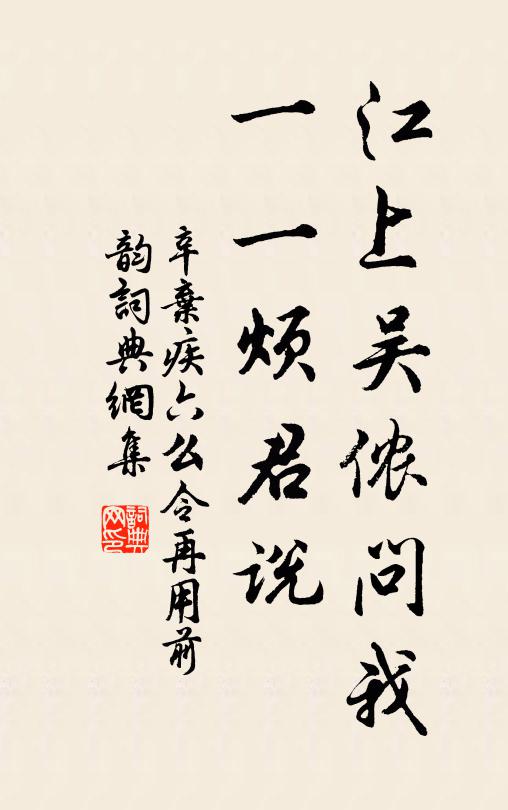 江上吴侬问我
一一烦君说
辛棄疾六么令再用前
韵詞典網集
詞典
网印